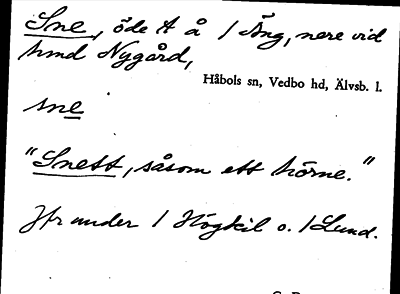 Sne, öde t å 1 Äng, nere vid
hmd Nygård,
Håbols sn, Vedbo hd, Älvsb. l.
sne
"Snett, såsom ett hörne."
Jfr under 1 Högkil o. 1 Lund.